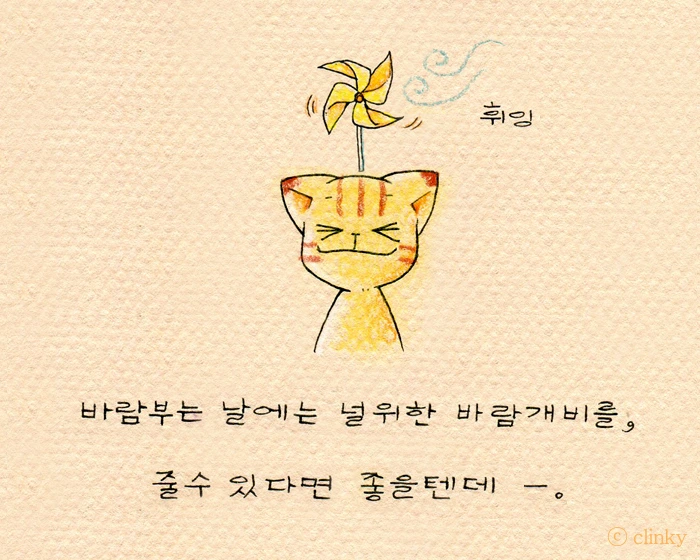 휘잉
바람부는 날에는 널위한 바람개비를,
줄수 있다면 좋을텐데 ー。
ⓒ clinky